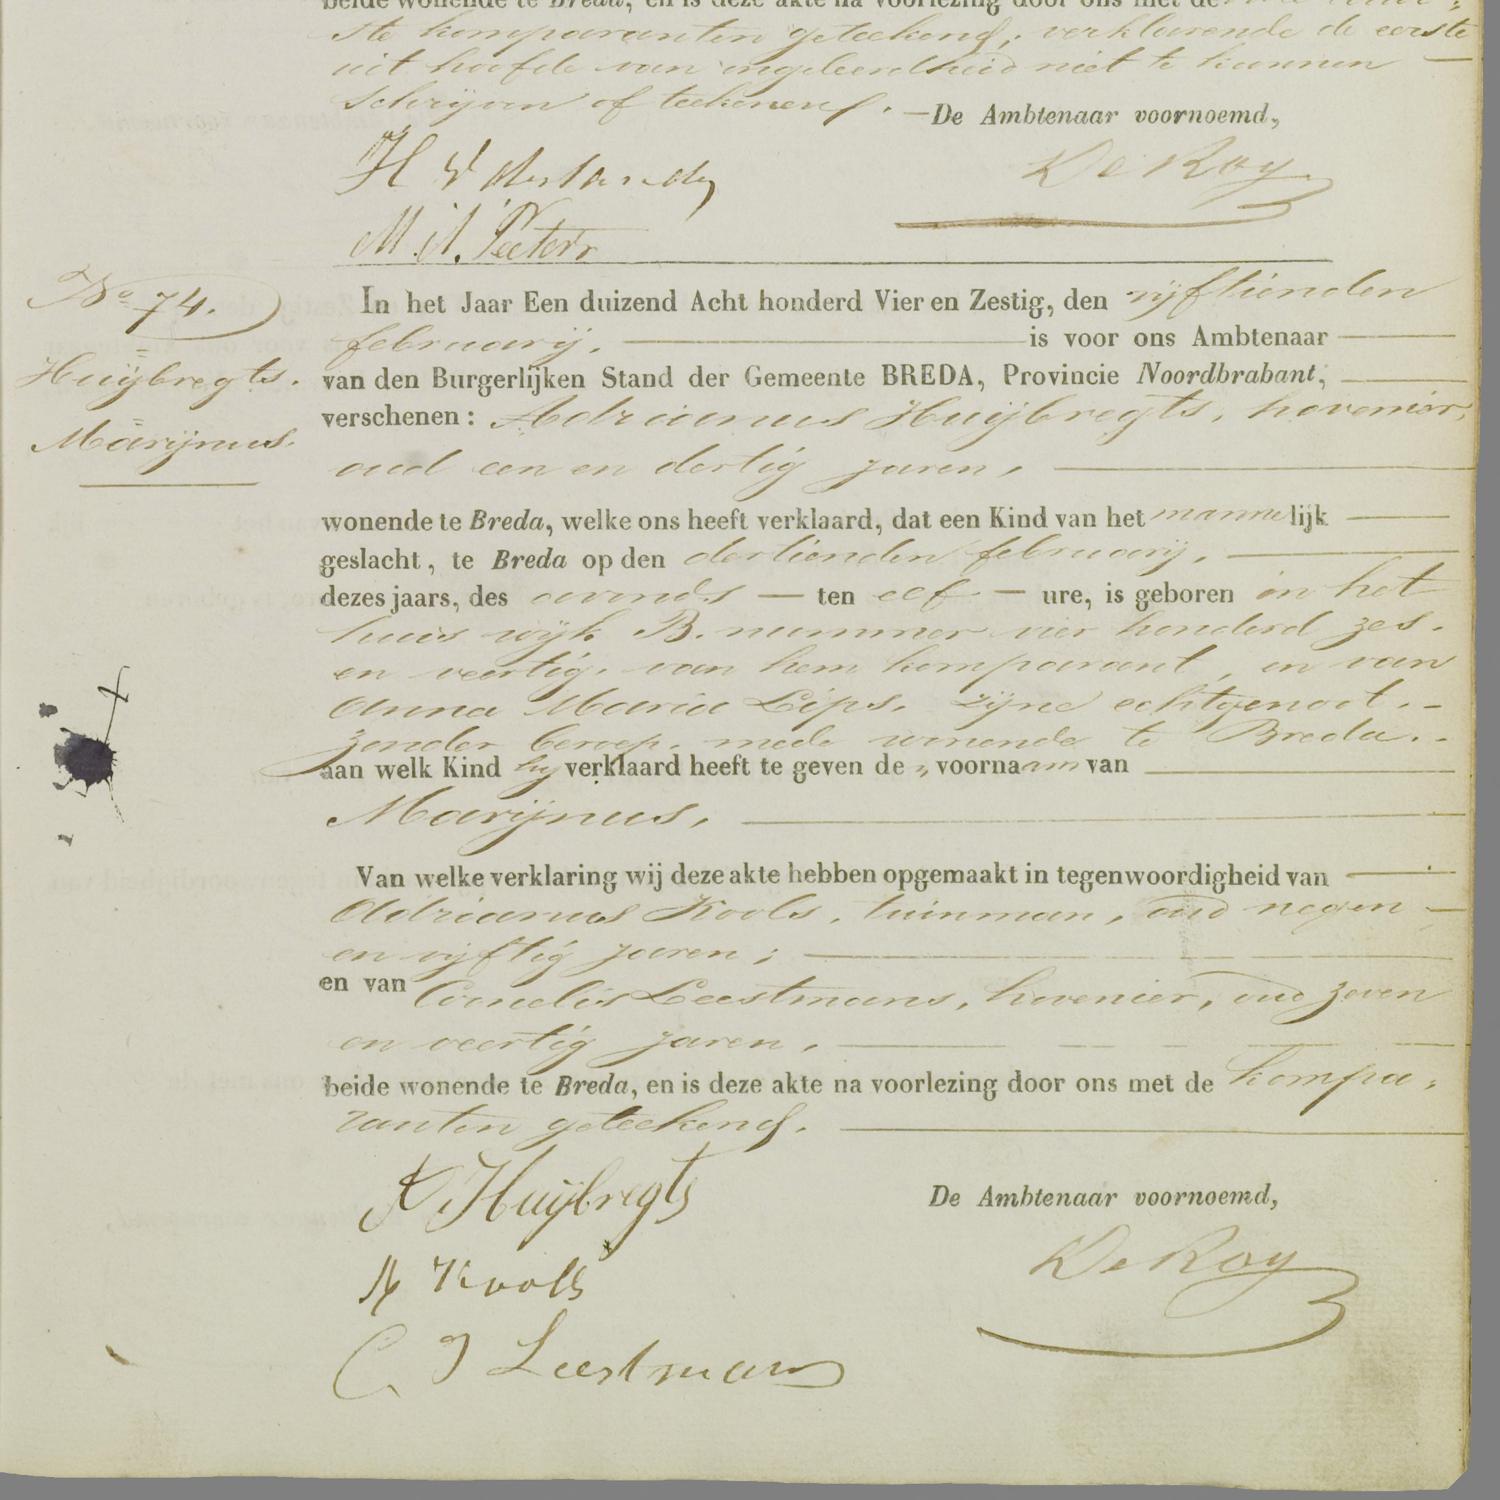 beide wonende te Breda, en is deze akte na voorlezing door ons met de
ste komparanten geteekend; verklarende de eerste
uit hoofde van ongeleerdheid niet te kunnen
schrijven of teekenen.
De Ambtenaar voornoemd,
De Roy
M. A. Peeters
No 74.
Huijbregts.
Marijnus.
In het Jaar Een duizend Acht honderd Vier en Zestig, den vijftienden
februarij, is voor ons Ambtenaar
van den Burgerlijken Stand der Gemeente BREDA, Provincie Noordbrabant,
verschenen: Adrianus Huijbregts, hovenier,
oud een en dertig jaren,
wonende te Breda, welke ons heeft verklaard, dat een Kind van het mannelijk
geslacht, te Breda op den dertienden februarij,
dezes jaars, des avonds ten elf ure, is geboren in het
huis wijk B. nummer vier honderd zes
en veertig, van hem komparant, en van
Anna Maria Lips, zijne echtgenoot,
zonder beroep, mede wonende te Breda.
aan welk Kind hij verklaard heeft te geven de voornaam van
Marijnus,
Van welke verklaring wij deze akte hebben opgemaakt in tegenwoordigheid van
Adrianus Kools, tuinman, oud negen
en vijftig jaren;
en van Cornelis Leestmans, hovenier, oud zeven
en veertig jaren,
beide wonende te Breda, en is deze akte na voorlezing door ons met de kompa-
ranten geteekend.
A Huijbregts
De Ambtenaar voornoemd,
De Roy
A Kools
C J Leestmans